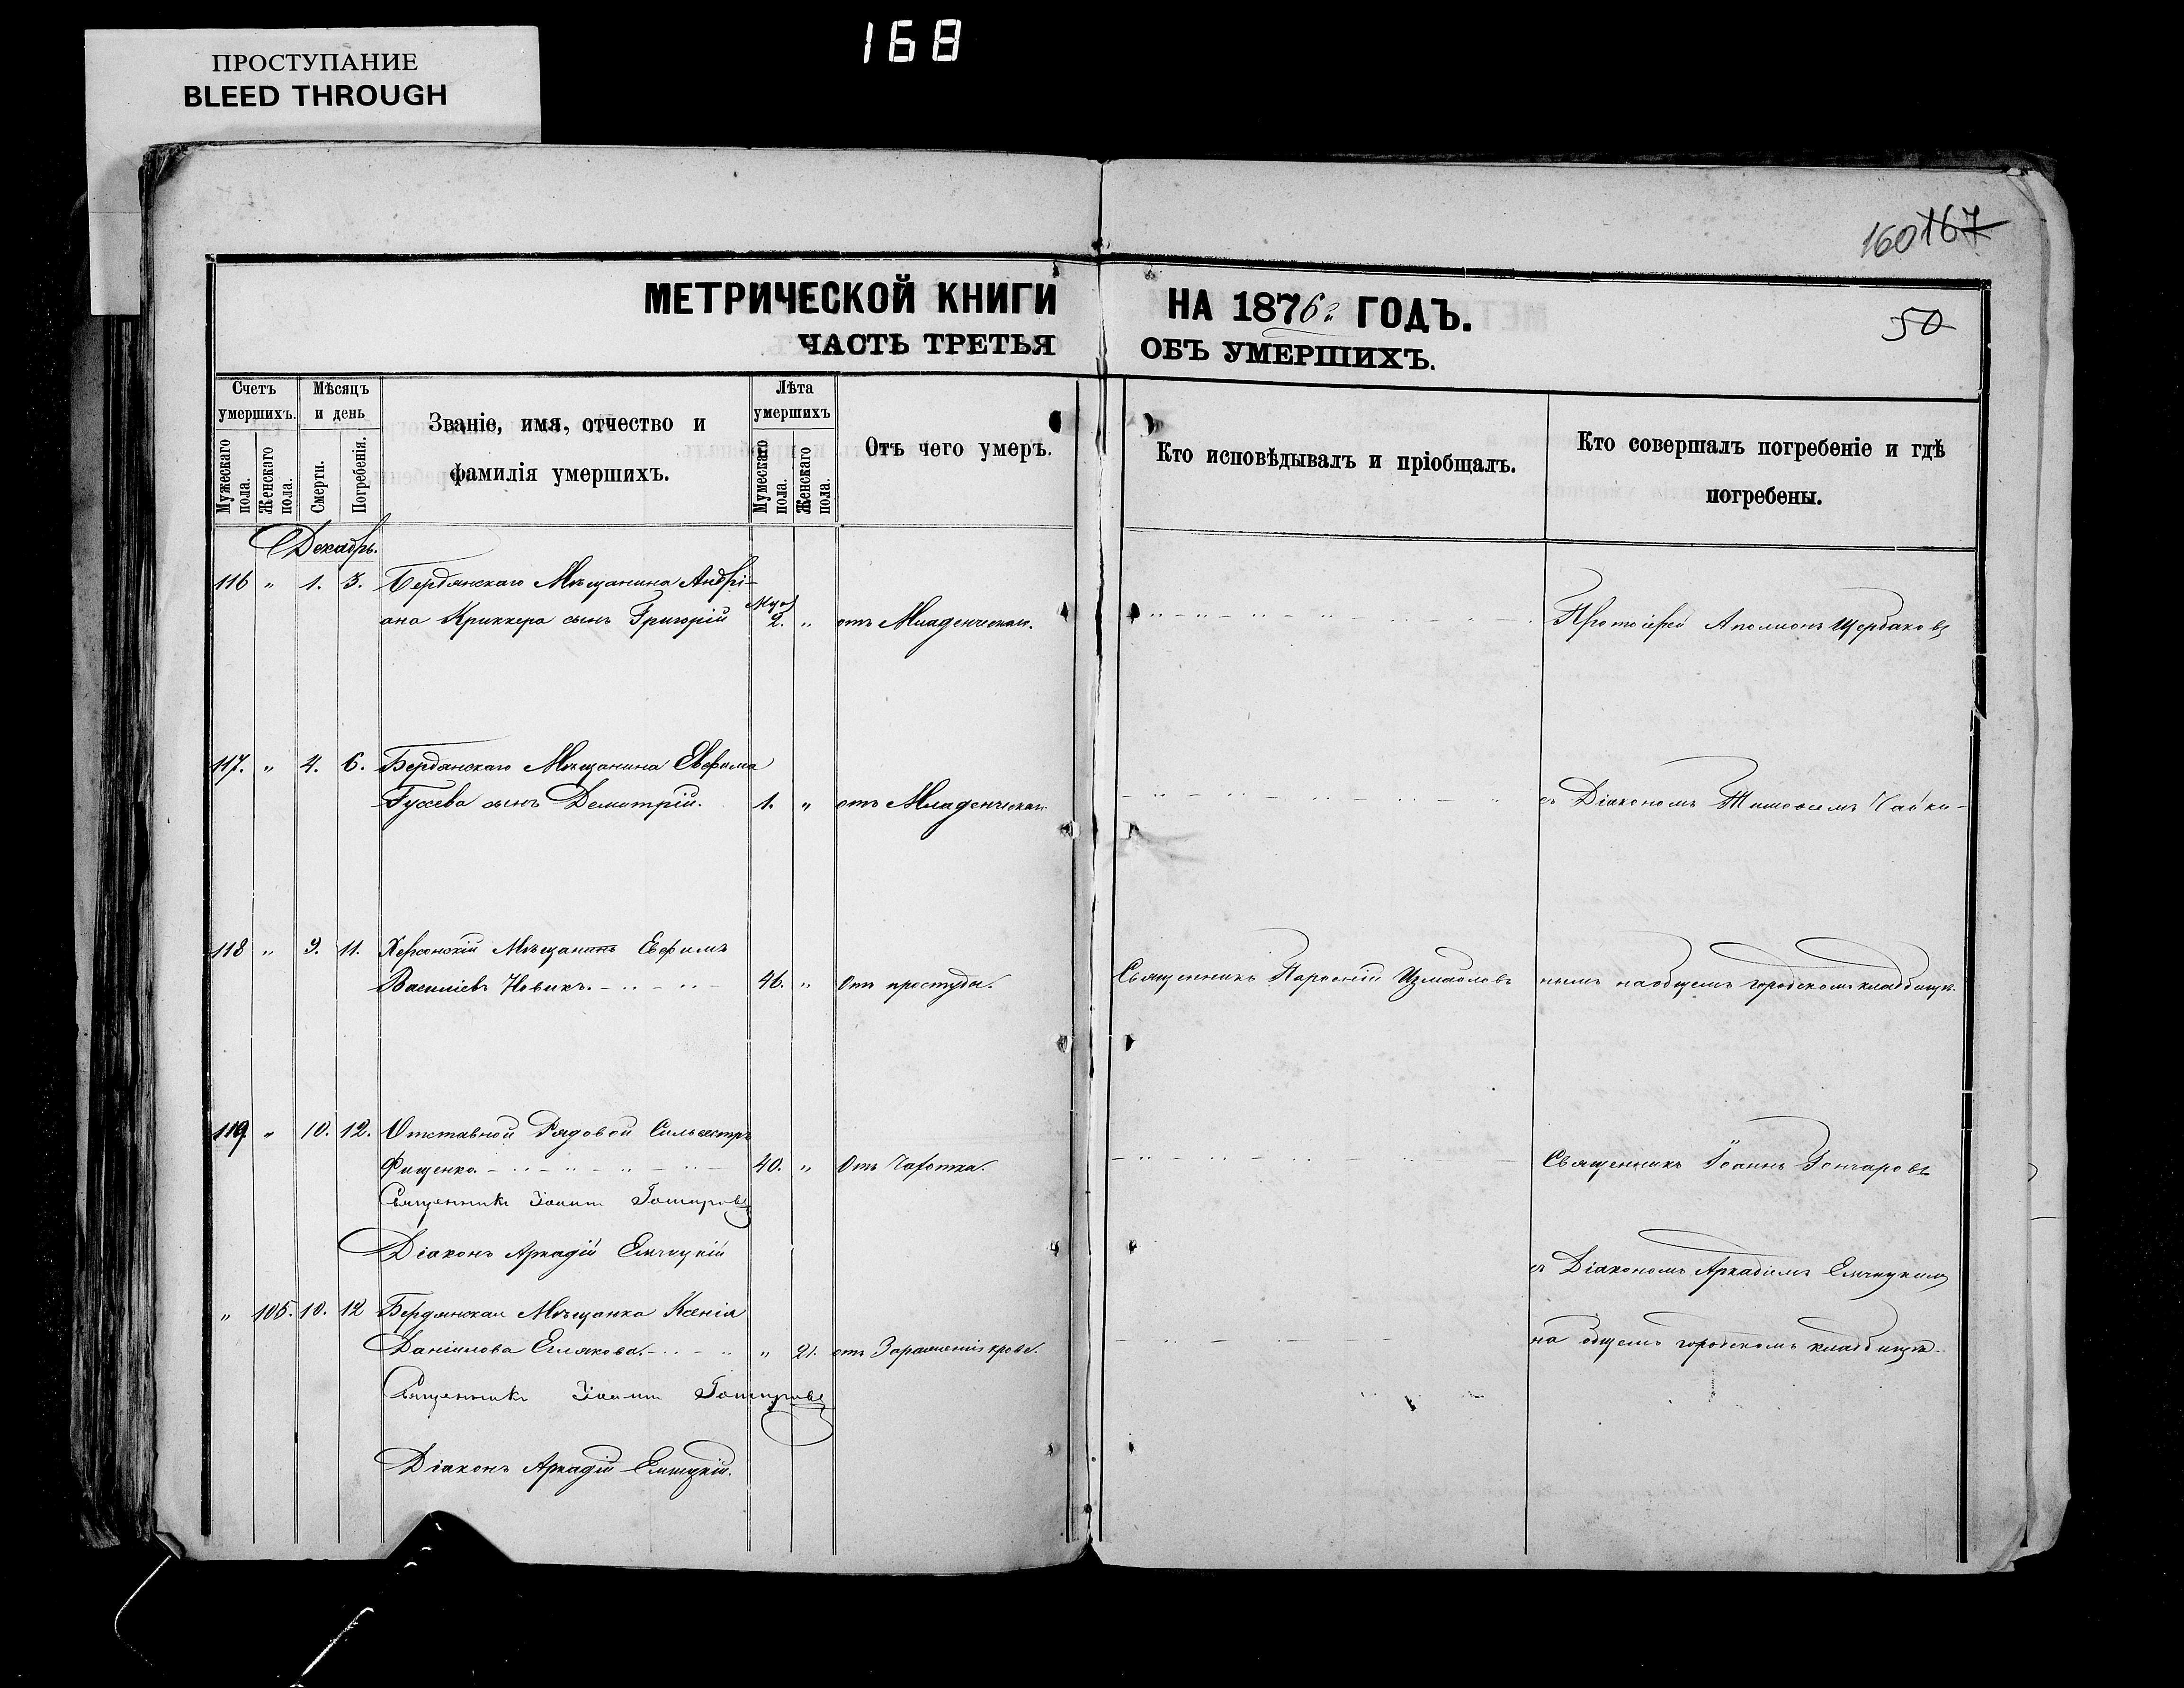 168
ПРОСТУПАНИЕ
BLEED THROUGH
160 167
МЕТРИЧЕСКОЙ КНИГИ НА 1876 г. ГОДЪ.
50
ЧАСТЬ ТРЕТЬЯ ОБЪ УМЕРШИХЪ.
Счетъ умершихъ.
Мужескаго пола.
Женскаго пола.
Мѣсяцъ и день
Смерти.
Погребенія.
Званіе, имя, отчество и
фамилія умершихъ.
Лѣта умершихъ
Мужескаго пола.
Женскаго пола.
Отъ чего умеръ.
Кто исповѣдывалъ и пріобщалъ.
Кто совершалъ погребеніе и гдѣ
погребены.
Декабрь.
116 " 1. 3. Бердянскаго Мѣщанина Андрі-
ана Криккера сынъ Григорій 2. " отъ Младенческаго. Протоіерей Аполлонъ Щербаковъ
117. " 4. 6. Бердянскаго Мѣщанина Евфима
Гусева сынъ Демитрій. 1. " отъ Младенческаго съ Діакономъ Тимофеемъ Чайки-
118 " 9. 11. Херсонскій Мѣщанинъ Евфимъ
Василіевъ Новикъ. 46. " Отъ простуды. Священникъ Парфеній Измаиловъ нымъ на общемъ городскомъ кладбищѣ.
119. " 10. 12. Отставной Рядовой Сильвестръ
Фищенко. 40. " Отъ Чахотки. Священникъ Іоаннъ Гончаровъ
Священникъ Іоаннъ Гончаровъ
Діаконъ Аркадій Емчицкій съ Діакономъ Аркадіемъ Емчицкимъ
" 105. 10. 12 Бердянская Мѣщанка Ксенія
Даніилова Еглякова. " 21. отъ Зараженія крове. на общемъ городскомъ кладбищѣ.
Священникъ Іоаннъ Гончаровъ
Діаконъ Аркадій Емчицкій.